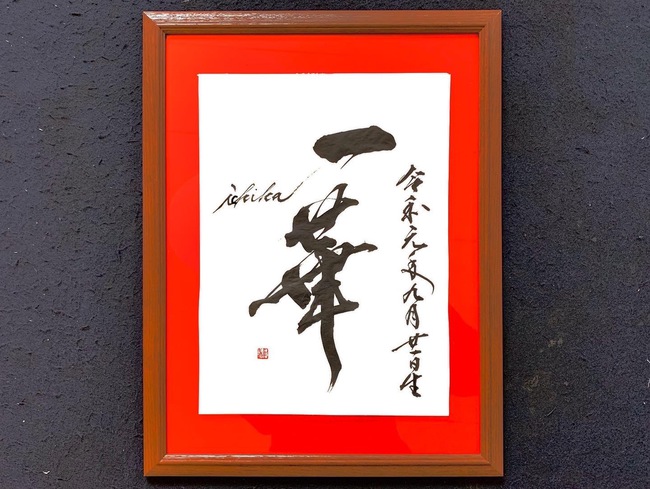 令和元年九月廿一日生
一華
ichika